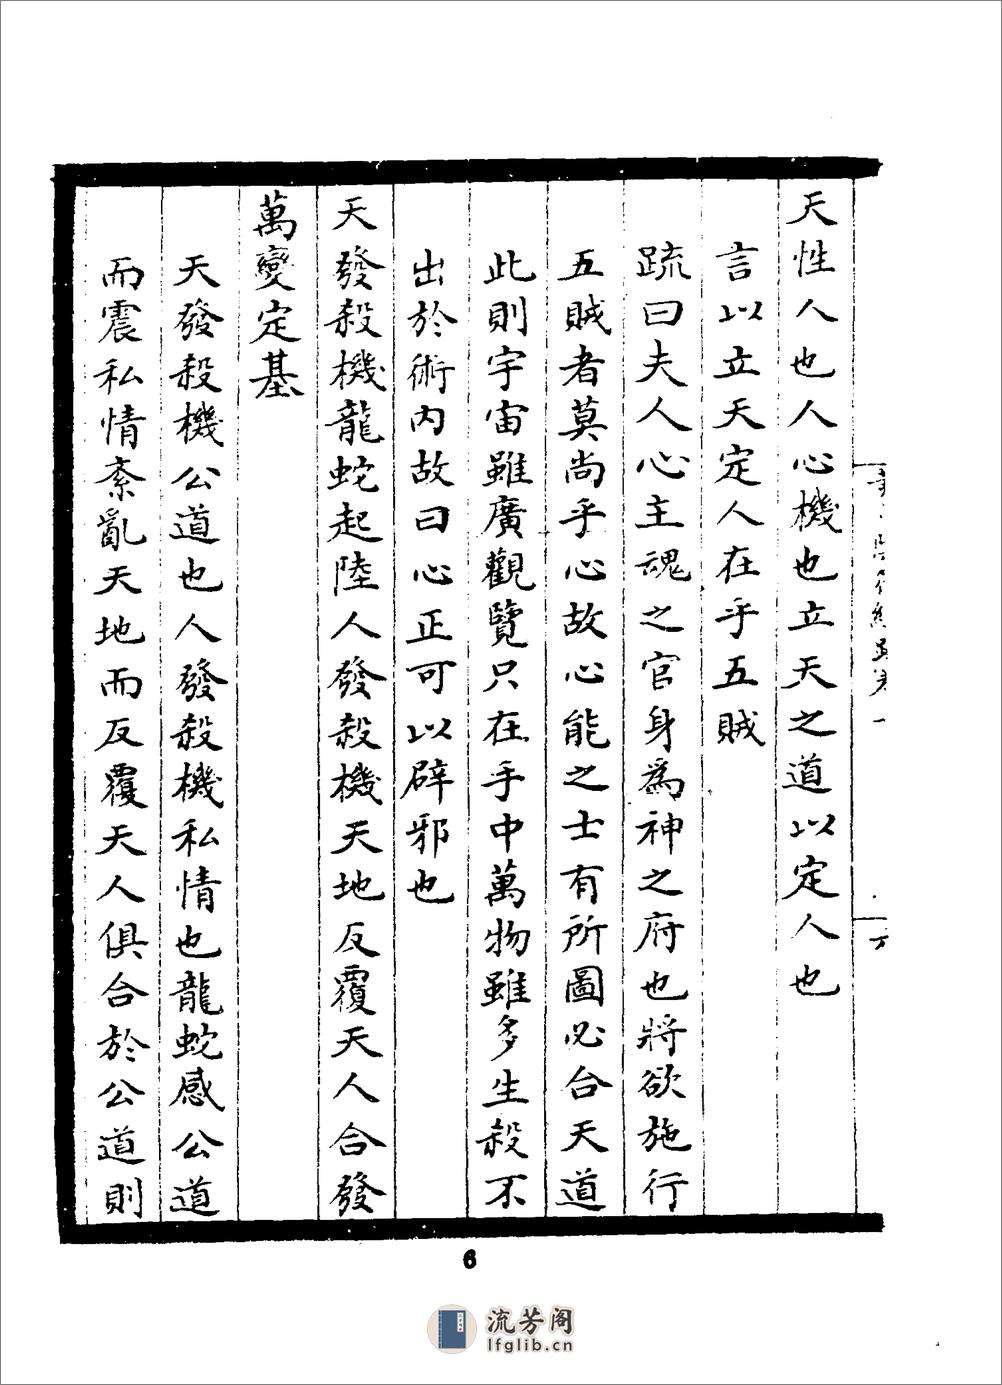 天性人也人心機也立天之道以定人也
言以立天定人在乎五賊
疏曰夫人心主魂之官身爲神之府也將欲施行
五賊者莫尚乎心故心能之士有所圖必合天道
此則宇宙雖廣觀覽只在手中萬物雖多生殺不
出於術內故曰心正可以辟邪也
天發殺機龍蛇起陸人發殺機天地反覆天人合發
萬變定基
天發殺機公道也人發殺機私情也龍蛇感公道
而震私情紊亂天地而反覆天人俱合於公道則
6
流芳阁
lfglib.cn